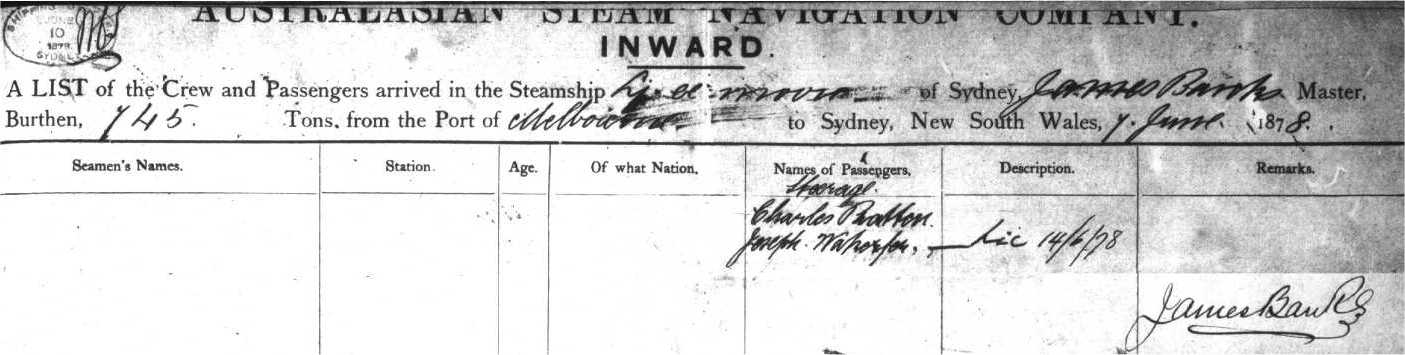 SHIPPING
JUNE
10
1878
SYDNEY
AUSTRALASIAN STEAM NAVIGATION COMPANY.
INWARD.
A LIST of the Crew and Passengers arrived in the Steamship of Sydney, James Banks Master,
Burthen, 745. Tons, from the Port of Melbourne to Sydney, New South Wales, 7. June. 1878.
Seamen's Names. Station. Age. Of what Nation. Names of Passengers, Description. Remarks.
Steerage.
Charles
Joseph Lic 14/6/78
James Banks